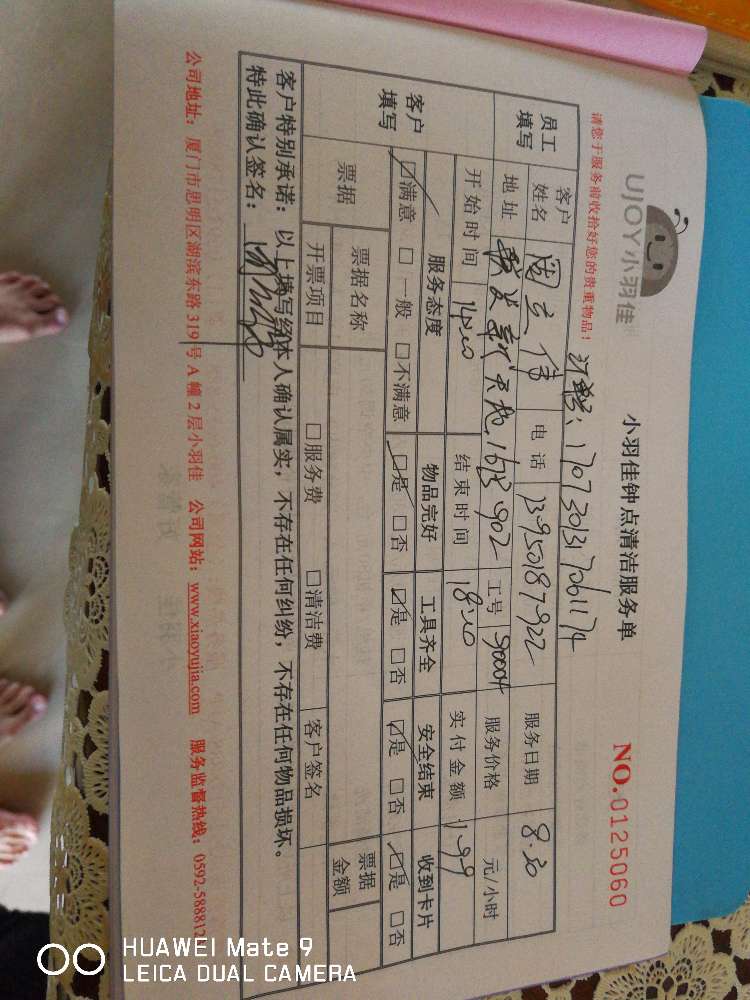 UJOY小羽佳
小羽佳钟点清洁服务单
NO.0125060
请您于服务前收拾好您的贵重物品！
1707301317061174
员工填写 客户姓名 电话 13950187922 服务日期 8.30
地址 902 工号 90004 服务价格 元/小时
开始时间 14:00 结束时间 18:00 实付金额 199
客户填写 服务态度 物品完好 工具齐全 安全结束 收到卡片
☑满意 □一般 □不满意 ☑是 □否 ☑是 □否 ☑是 □否 ☑是 □否
票据 票据名称 票据金额
开票项目 □服务费 □清洁费 客户签名
客户特别承诺：以上填写经本人确认属实，不存在任何纠纷，不存在任何物品损坏。
特此确认签名：
公司地址：厦门市思明区湖滨东路319号A幢2层小羽佳 公司网站：www.xiaoyujia.com 服务监督热线：0592-588812
HUAWEI Mate 9
LEICA DUAL CAMERA